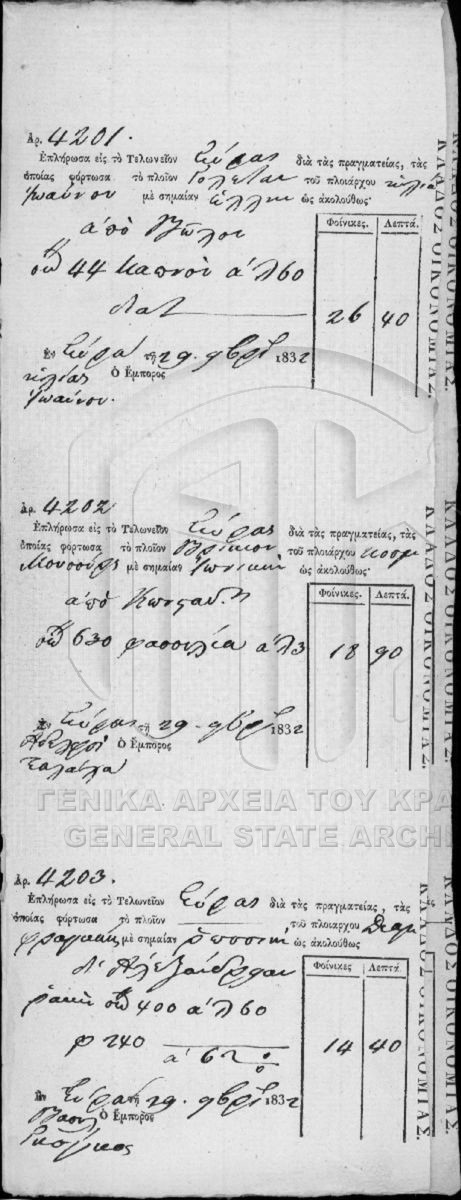 Ἀρ. 4201.
Ἐπλήρωσα εἰς τὸ Τελωνεῖον Σύρας διὰ τὰς πραγματείας, τὰς
ὁποίας φόρτωσα τὸ πλοῖον Γολέτα τοῦ πλοιάρχου ἠλία
Ἰωάννου μὲ σημαίαν ἑλλην ὡς ἀκολούθως·
Φοίνικες. Λεπτά.
ἀπὸ Βῶλον
44 καπνοῦ ἀ λ 60
26 40
Ἐν Σύρᾳ τῇ 29 9βρί 1832
ἠλίας Ὁ Ἔμπορος
Ἰωάννου.
Ἀρ. 4202
Ἐπλήρωσα εἰς τὸ Τελωνεῖον Σύρας διὰ τὰς πραγματείας, τὰς
ὁποίας φόρτωσα τὸ πλοῖον Βρίκιον τοῦ πλοιάρχου κοσμ
Μουσούρη μὲ σημαίαν Ἰωνικὴν ὡς ἀκολούθως·
Φοίνικες. Λεπτά.
ἀπὸ
630 φασούλια ἀ λ 3
18 90
Ἐν Σύρᾳ τῇ 29 9βρί 1832
Ἀδελφοὶ Ὁ Ἔμπορος
Ἀρ. 4203.
Ἐπλήρωσα εἰς τὸ Τελωνεῖον Σύρας διὰ τὰς πραγματείας, τὰς
ὁποίας φόρτωσα τὸ πλοῖον τοῦ πλοιάρχου
μὲ σημαίαν ὡς ἀκολούθως
Φοίνικες Λεπτά.
δι' Ἀλεξάνδρειαν
ῥακὴ 400 ἀ λ 60
φ 240
ἀ 6
14 40
Ἐν Σύρᾳ τῇ 29 9βρί 1832
Βασιλ Ὁ Ἔμπορος
ΚΛΑΔΟΣ ΟΙΚΟΝΟΜΙΑΣ.
ΚΛΑΔΟΣ ΟΙΚΟΝΟΜΙΑΣ.
ΚΛΑΔΟΣ ΟΙΚΟΝΟΜΙΑΣ.
ΚΛΑΔΟΣ ΟΙΚΟΝΟΜΙΑΣ.
ΚΛΑΔΟΣ ΟΙΚΟΝΟΜΙΑΣ.
ΚΛΑΔΟΣ ΟΙΚΟΝΟΜΙΑΣ.
ΓΕΝΙΚΑ ΑΡΧΕΙΑ ΤΟΥ ΚΡΑ
GENERAL STATE ARCHI